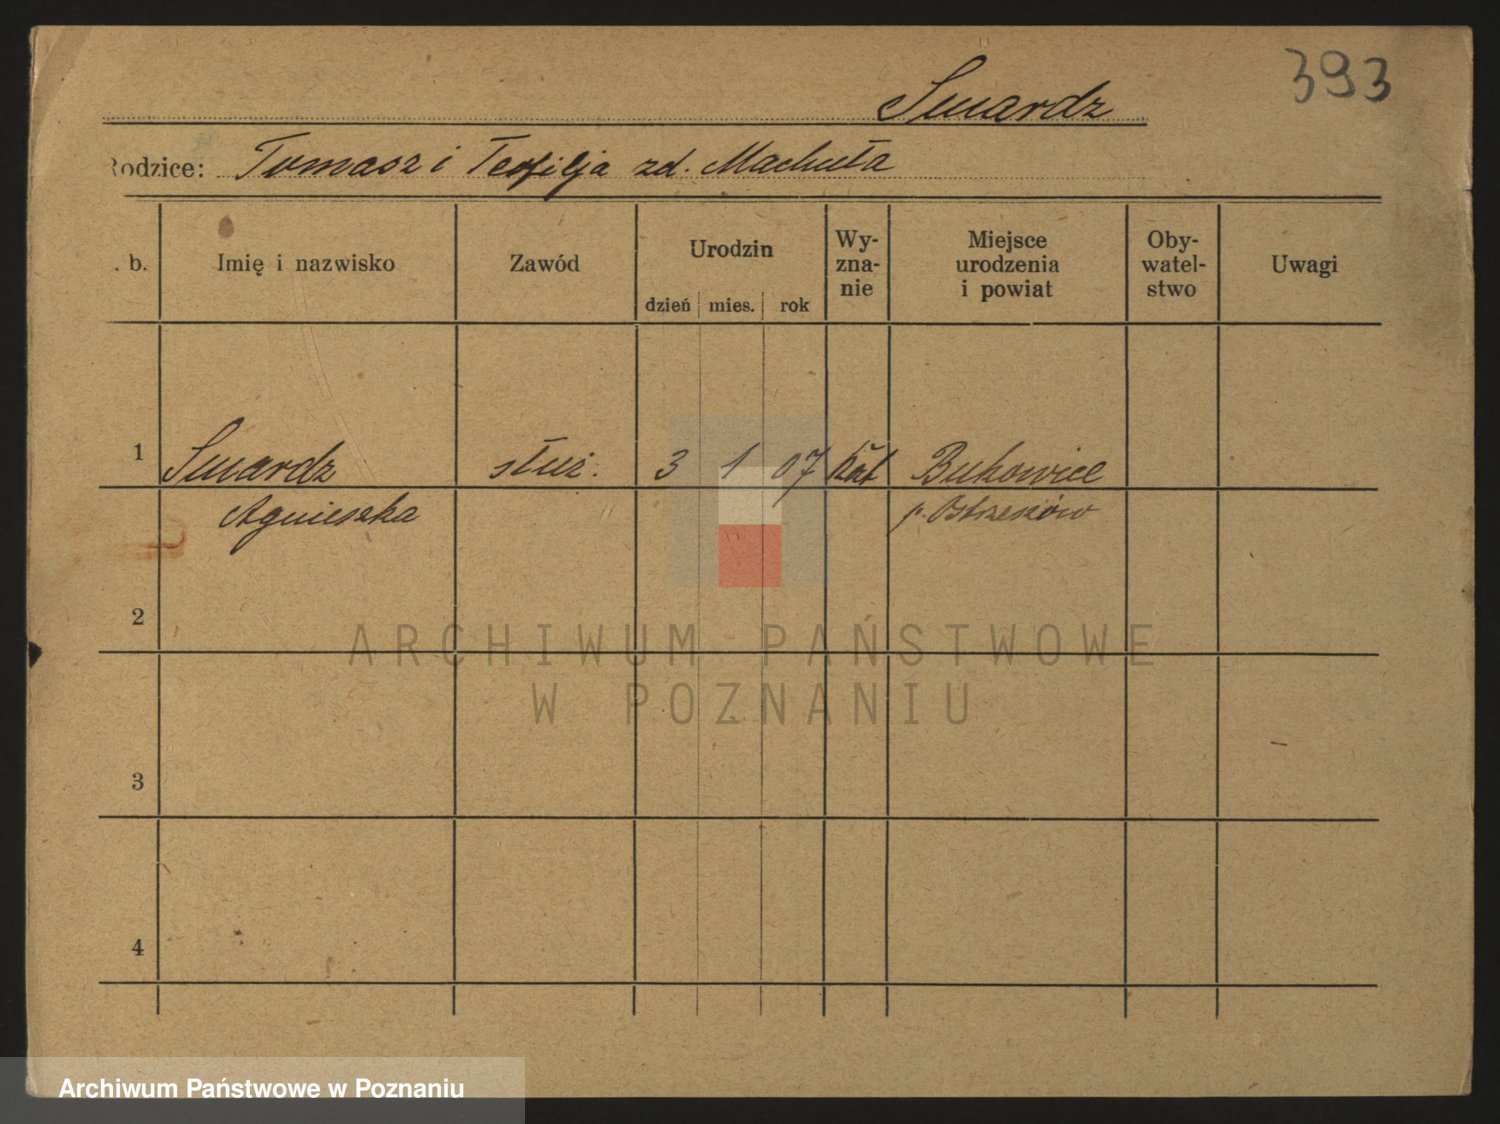 393
Smardz
Rodzice: Tomasz i Teofilja zd. Machuła
. b.
Imię i nazwisko
Zawód
Urodzin
dzień mies. rok
Wy-
zna-
nie
Miejsce
urodzenia
i powiat
Oby-
watel-
stwo
Uwagi
1 Smardz służ. 3 1 07 Kat Bukowice
Agnieszka p. Ostrzeszów
2
ARCHIWUM PAŃSTWOWE
W POZNANIU
3
4
Archiwum Państwowe w Poznaniu